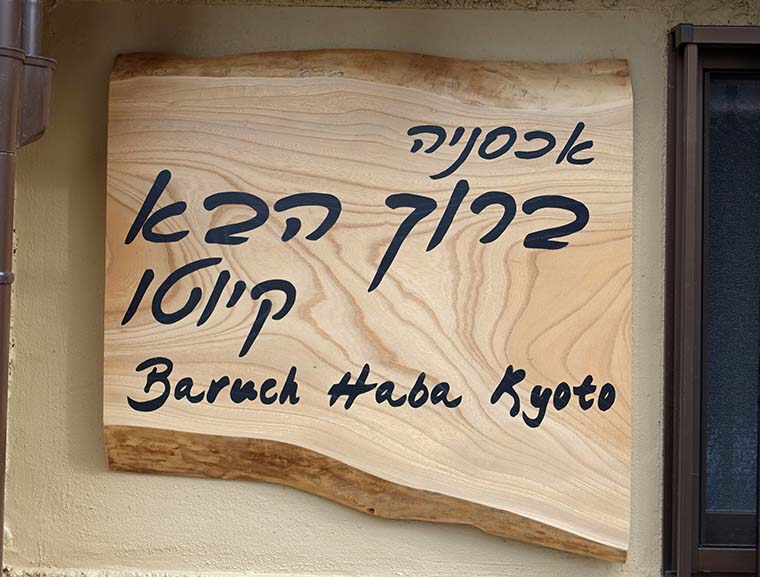 אכסניה
ברוך הבא
קיוטו
Baruch Haba Kyoto